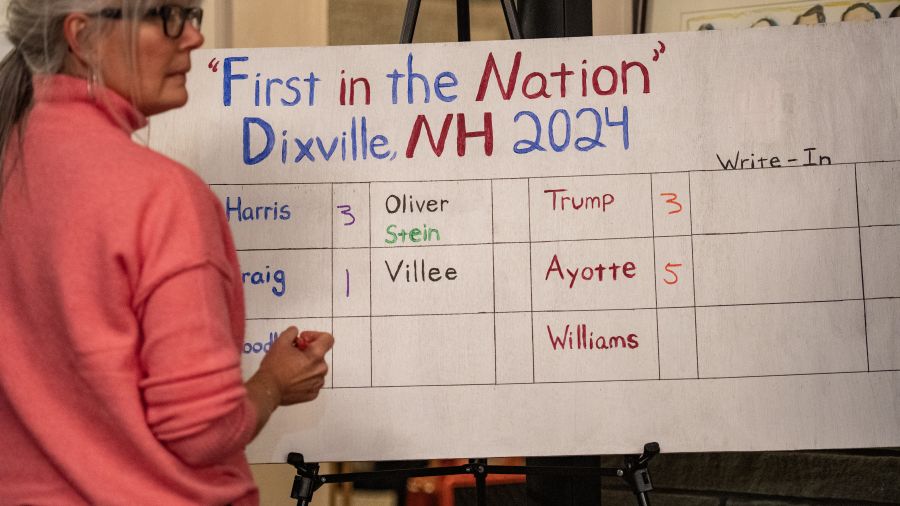 "First in the Nation"
Dixville, NH 2024
Write-In
Harris 3 Oliver Trump 3
Stein
raig 1 Villee Ayotte 5
ood Williams